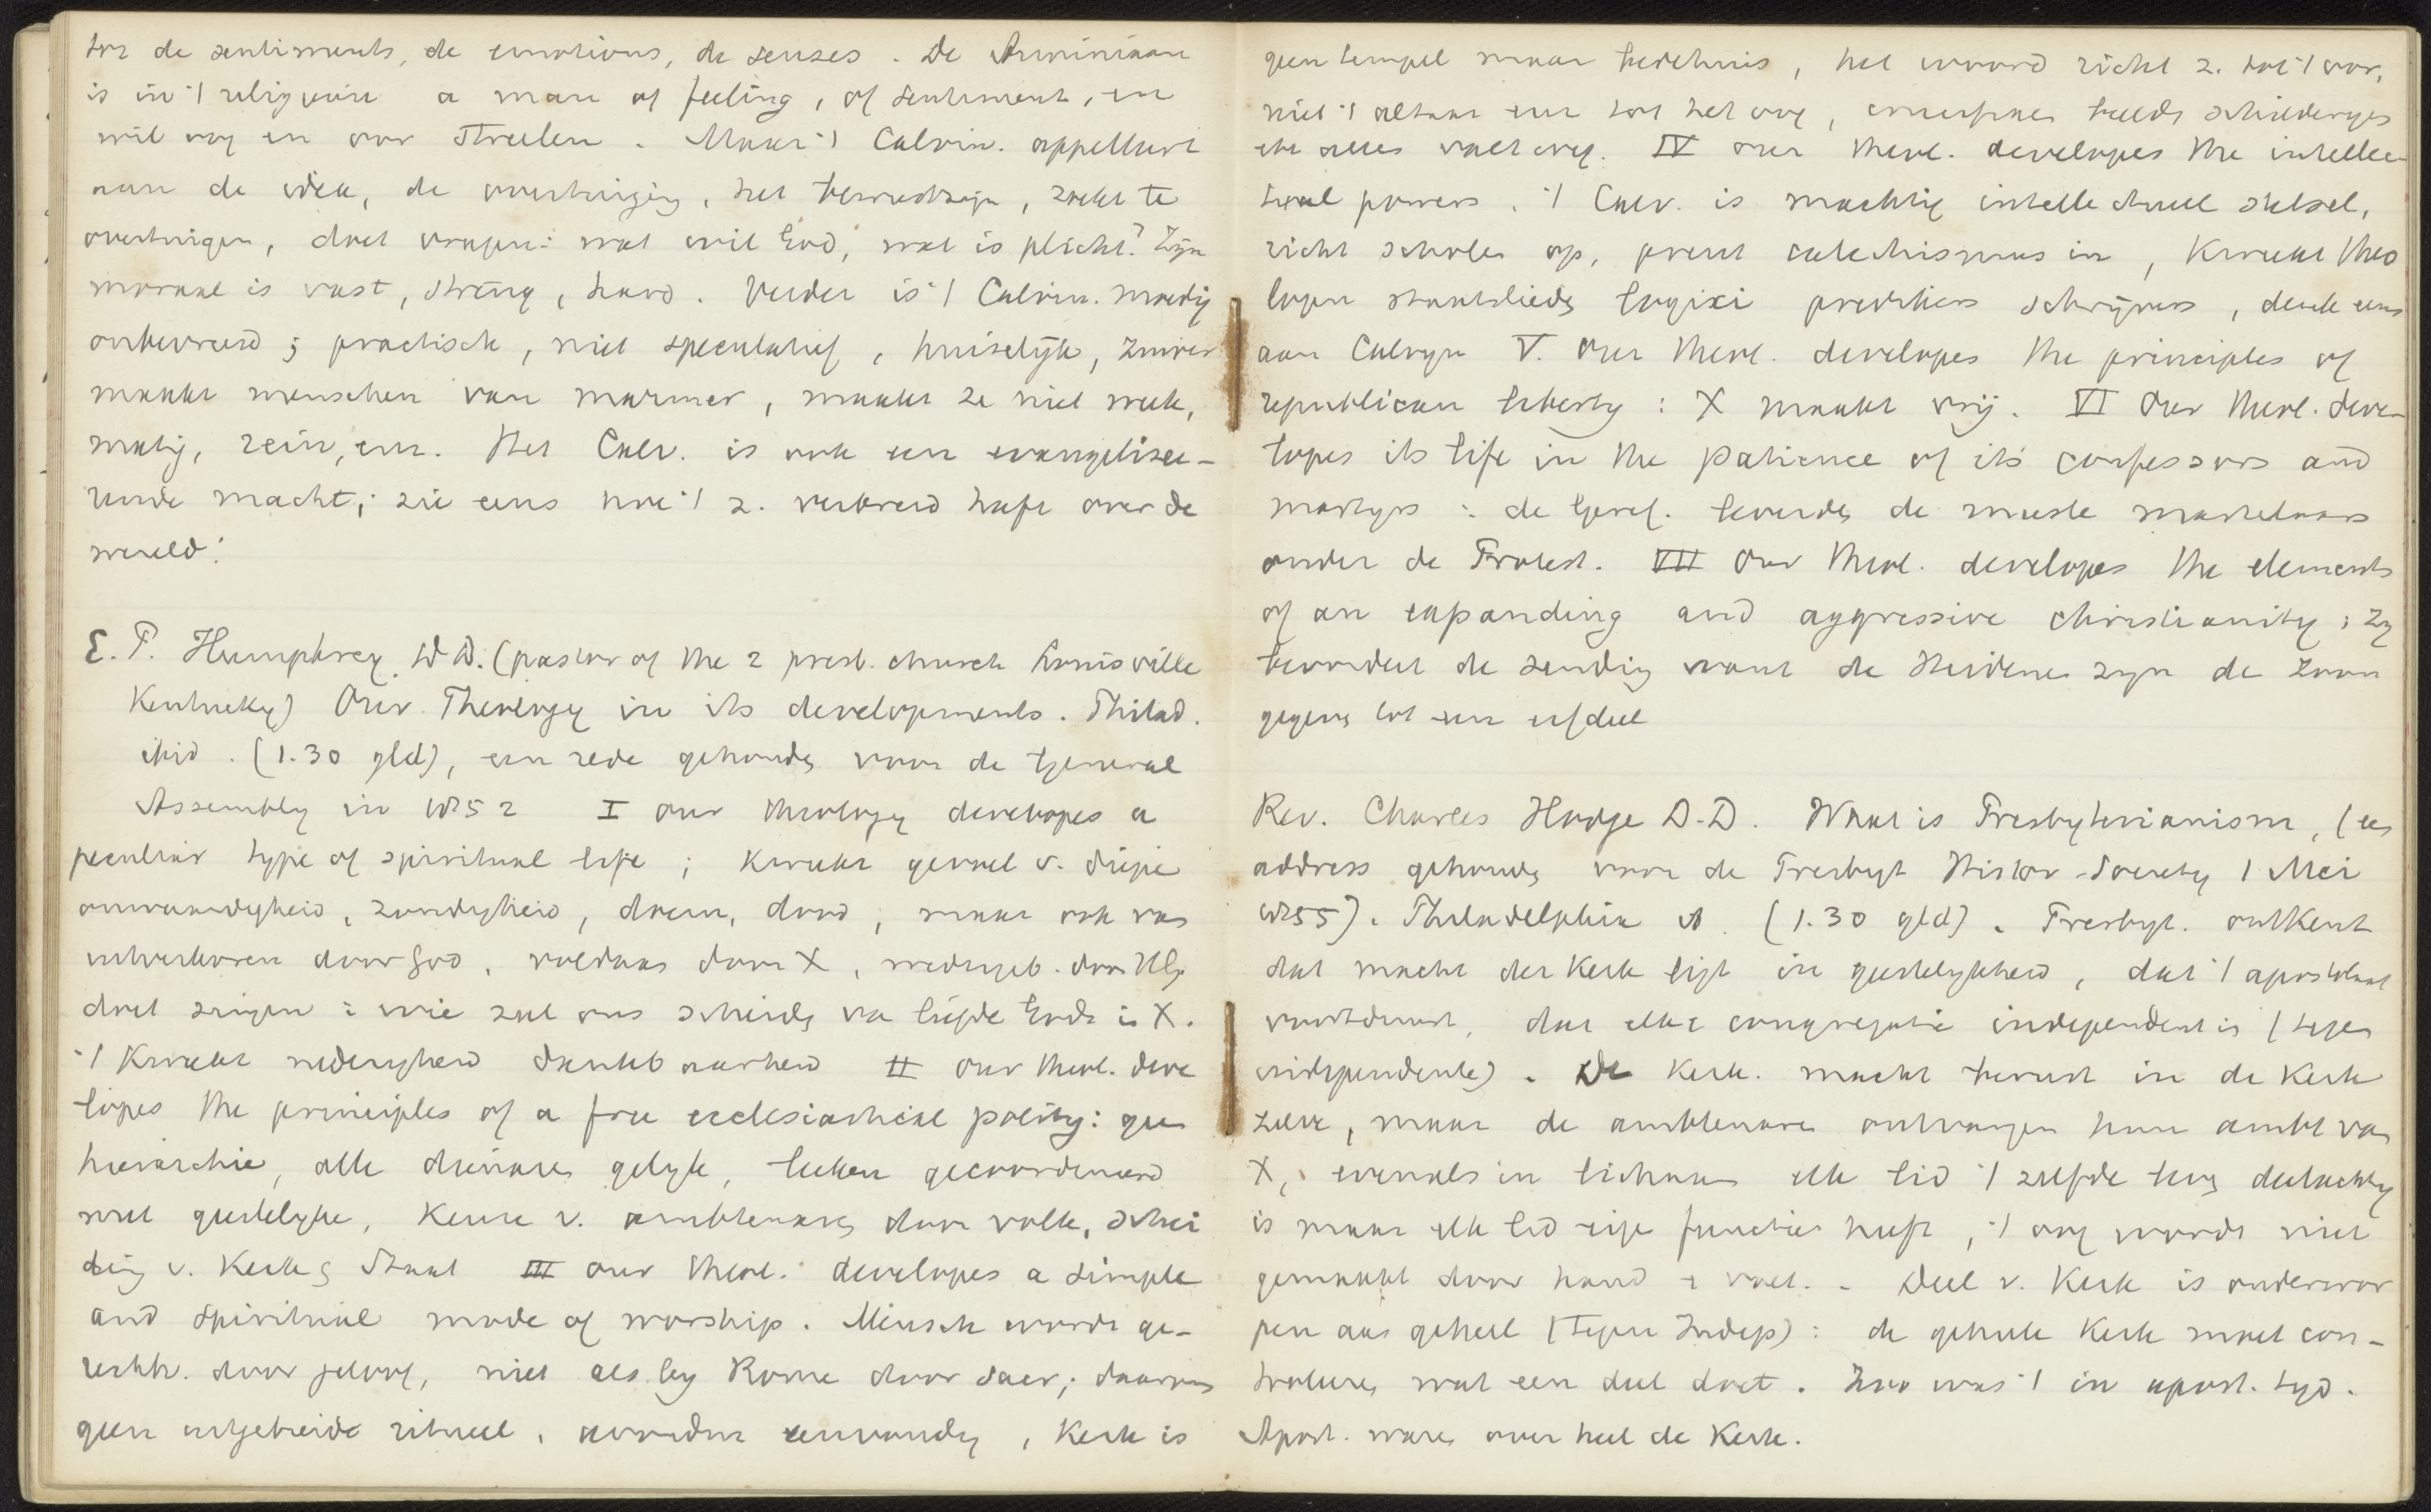 tot de sentiments, de emotions, de senses. De Arminiaan
is in 't religieuze a man of feeling, of sentiment, en
wil oog en oor streelen. Maar 't Calvin. appelleert
aan de idee, de overtuiging, het bewustzijn, zoekt te
overtuigen, doet vragen: wat wil God, wat is plicht? Zijn
moraal is vast, streng, hard. Verder is 't Calvin. moedig
onbevreesd; practisch, niet speculatief, huiselijk, zuiver
maakt menschen van marmer, maakt ze niet week,
matig, rein, enz. Het Calv. is ook een evangelisee-
rende macht; zie eens hoe 't z. verbreid heeft over de
wereld!
E. P. Humphrey D.D. (pastor of the 2 presb. church Louisville
Kentucky) Our Theology in its developments. Philad.
ibid. (1.30 gld), een rede gehouden voor de General
Assembly in 1852 I our theology developes a
peculiar type of spiritual life; kweekt gevoel v. diepe
onwaardigheid, zondigheid, doem, dood, maar ook van
uitverkoren door God, voldaan door X, wedergeb. door H.G.
doet zingen: wie zal ons scheiden van liefde Gods in X.
't Kweekt nederigheid dankbaarheid II Our theol. deve
lopes the principles of a free ecclesiastical polity: geen
hierarchie, alle dienaren gelijk, leeken gecoordineerd
met geestelijke, keuze v. ambtenaren door volk, schei
ding v. Kerk & Staat III our theol. developes a simple
and spiritual mode of worship. Mensch wordt ge-
rechtv. door geloof, niet als bij Rome door sacr.; daarom
geen uitgebreide ritueel, avondm eenvoudig, Kerk is
geen tempel maar bedehuis, het woord richt z. tot 't oor,
niet 't altaar enz tot het oog, beelden schilderijen
en alles valt weg. IV our theol. developes the intellec-
tual powers. 't Calv. is machtig intellectueel stelsel,
richt scholen op, prent catechismus in, kweekt theo
logen staatslieden logici predikers schrijvers, denk eens
aan Calvijn V. Our theol. developes the principles of
republican liberty: X maakt vrij. VI Our theol. deve-
lopes its life in the patience of its confessors and
martyrs: de Geref. leverden de meeste martelaars
onder de Protest. VII Our theol. developes the elements
of an expanding and aggressive christianity; zij
bevordert de zending want de Heidenen zijn de Zoon
gegeven tot een erfdeel
Rev. Charles Hodge D.D. What is Presbyterianism, (een
address gehouden voor de Presbyt Histor. Society 1 Mei
1855). Philadelphia ib. (1.30 gld). Presbyt. ontkent
dat macht der Kerk ligt in geestelijkheid, dat 't apostolaat
voortduurt, dat elke congregatie independent is (tegen
independente). De Kerk. macht berust in de Kerk
zelve, maar de ambtenaren ontvangen hun ambt van
X, evenals in lichaam elk lid 't zelfde leven deelachtig
is maar elk lid eigen functies heeft, 't oog wordt niet
gemaakt door hand & voet. - Deel v. Kerk is onderwor
pen aan geheel (tegen Indep): de geheele Kerk moet con-
troleren wat een deel doet. Zoo was 't in apost. tyd.
Apost. waren over heel de Kerk.